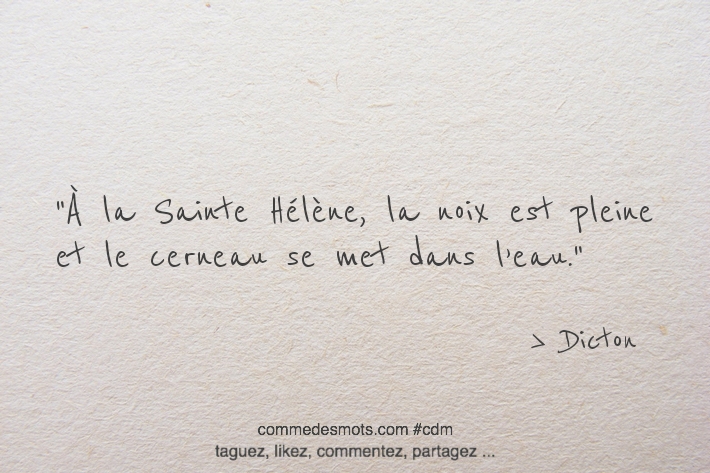 "À la Sainte Hélène, la noix est pleine
et le cerneau se met dans l'eau."
> Dicton
commedesmots.com #cdm
taguez, likez, commentez, partagez ...